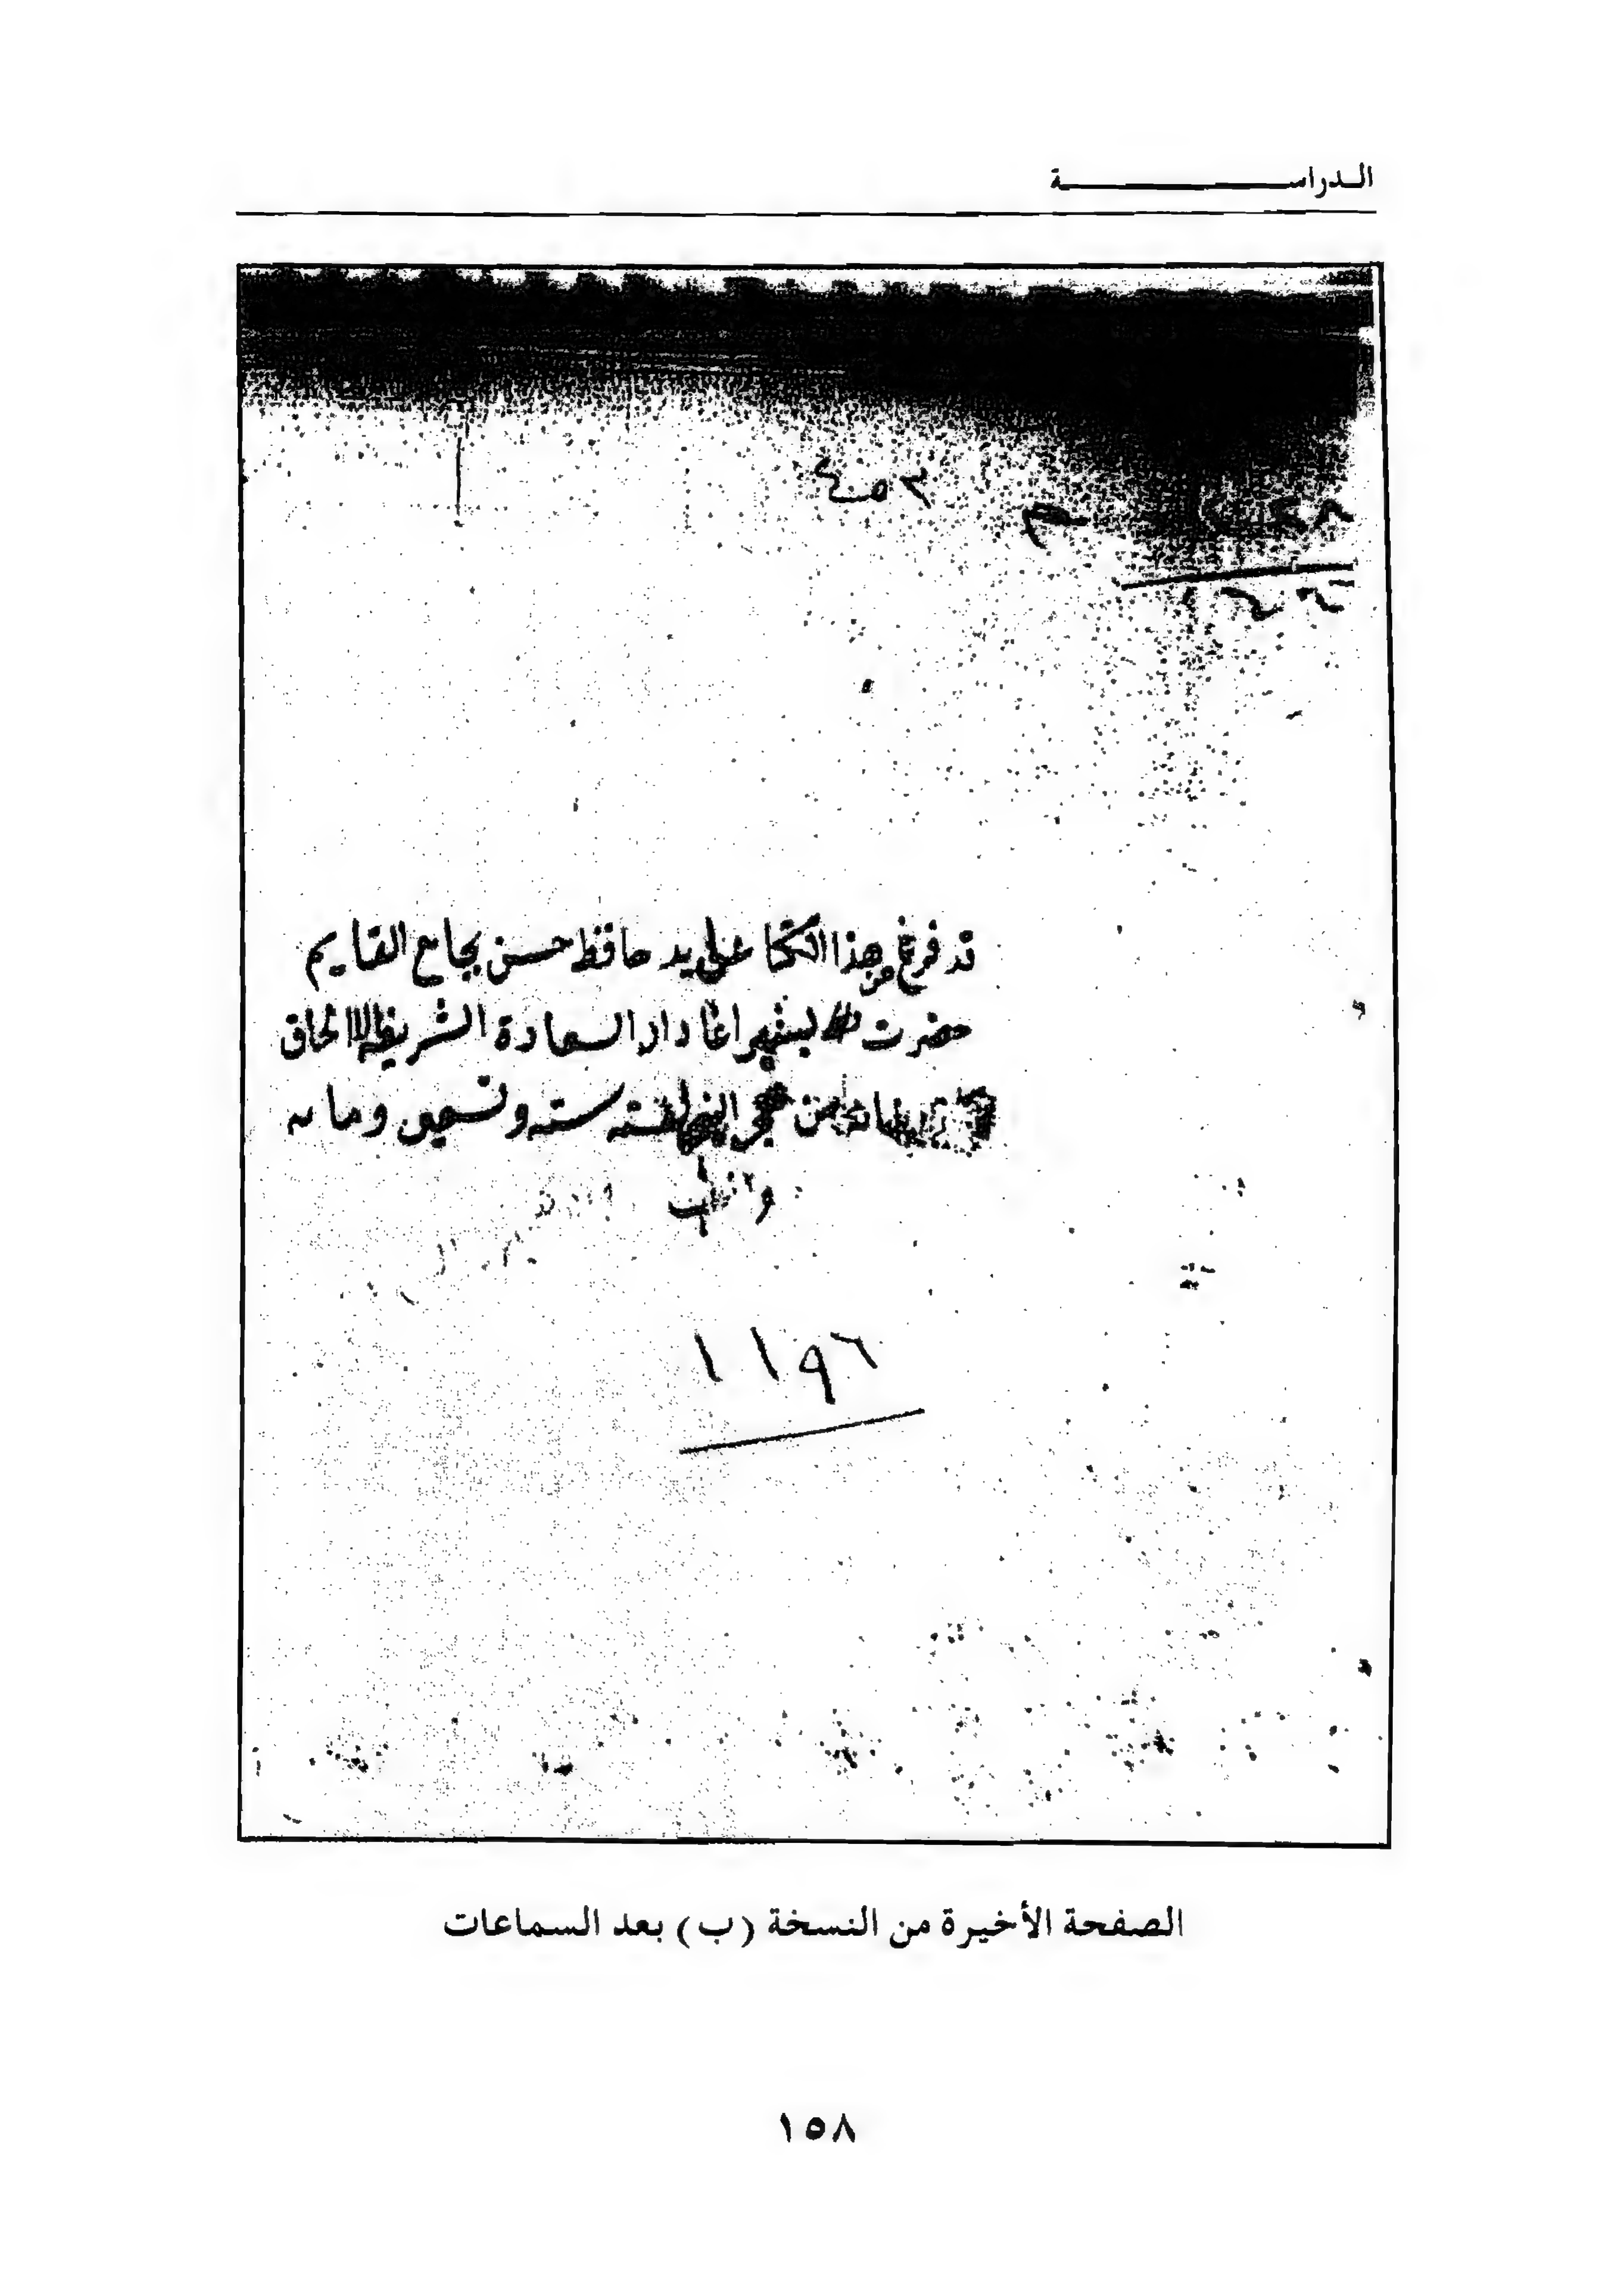 الدراسة
٤٥٢
قد فرغ من هذا الكتا على يد حافظ حسن بجامع القايم
حضرت بشير اغا دار السعادة الشريفة
من هجر سنه سته وتسعين ومايه
والف
١١٩٦
الصفحة الأخيرة من النسخة (ب) بعد السماعات
١٥٨